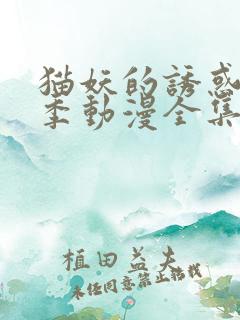 猫妖的誘惑
季動漫全集
植田益夫
未任同意禁止轉載